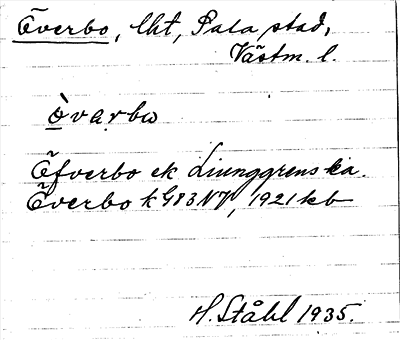 Överbo, lht, Sala stad,
Västm. l.
òvarbω
Öfverbo ek Ljunggrenska.
Överbo k G83NV, 1921 kb
H. Ståhl 1935.